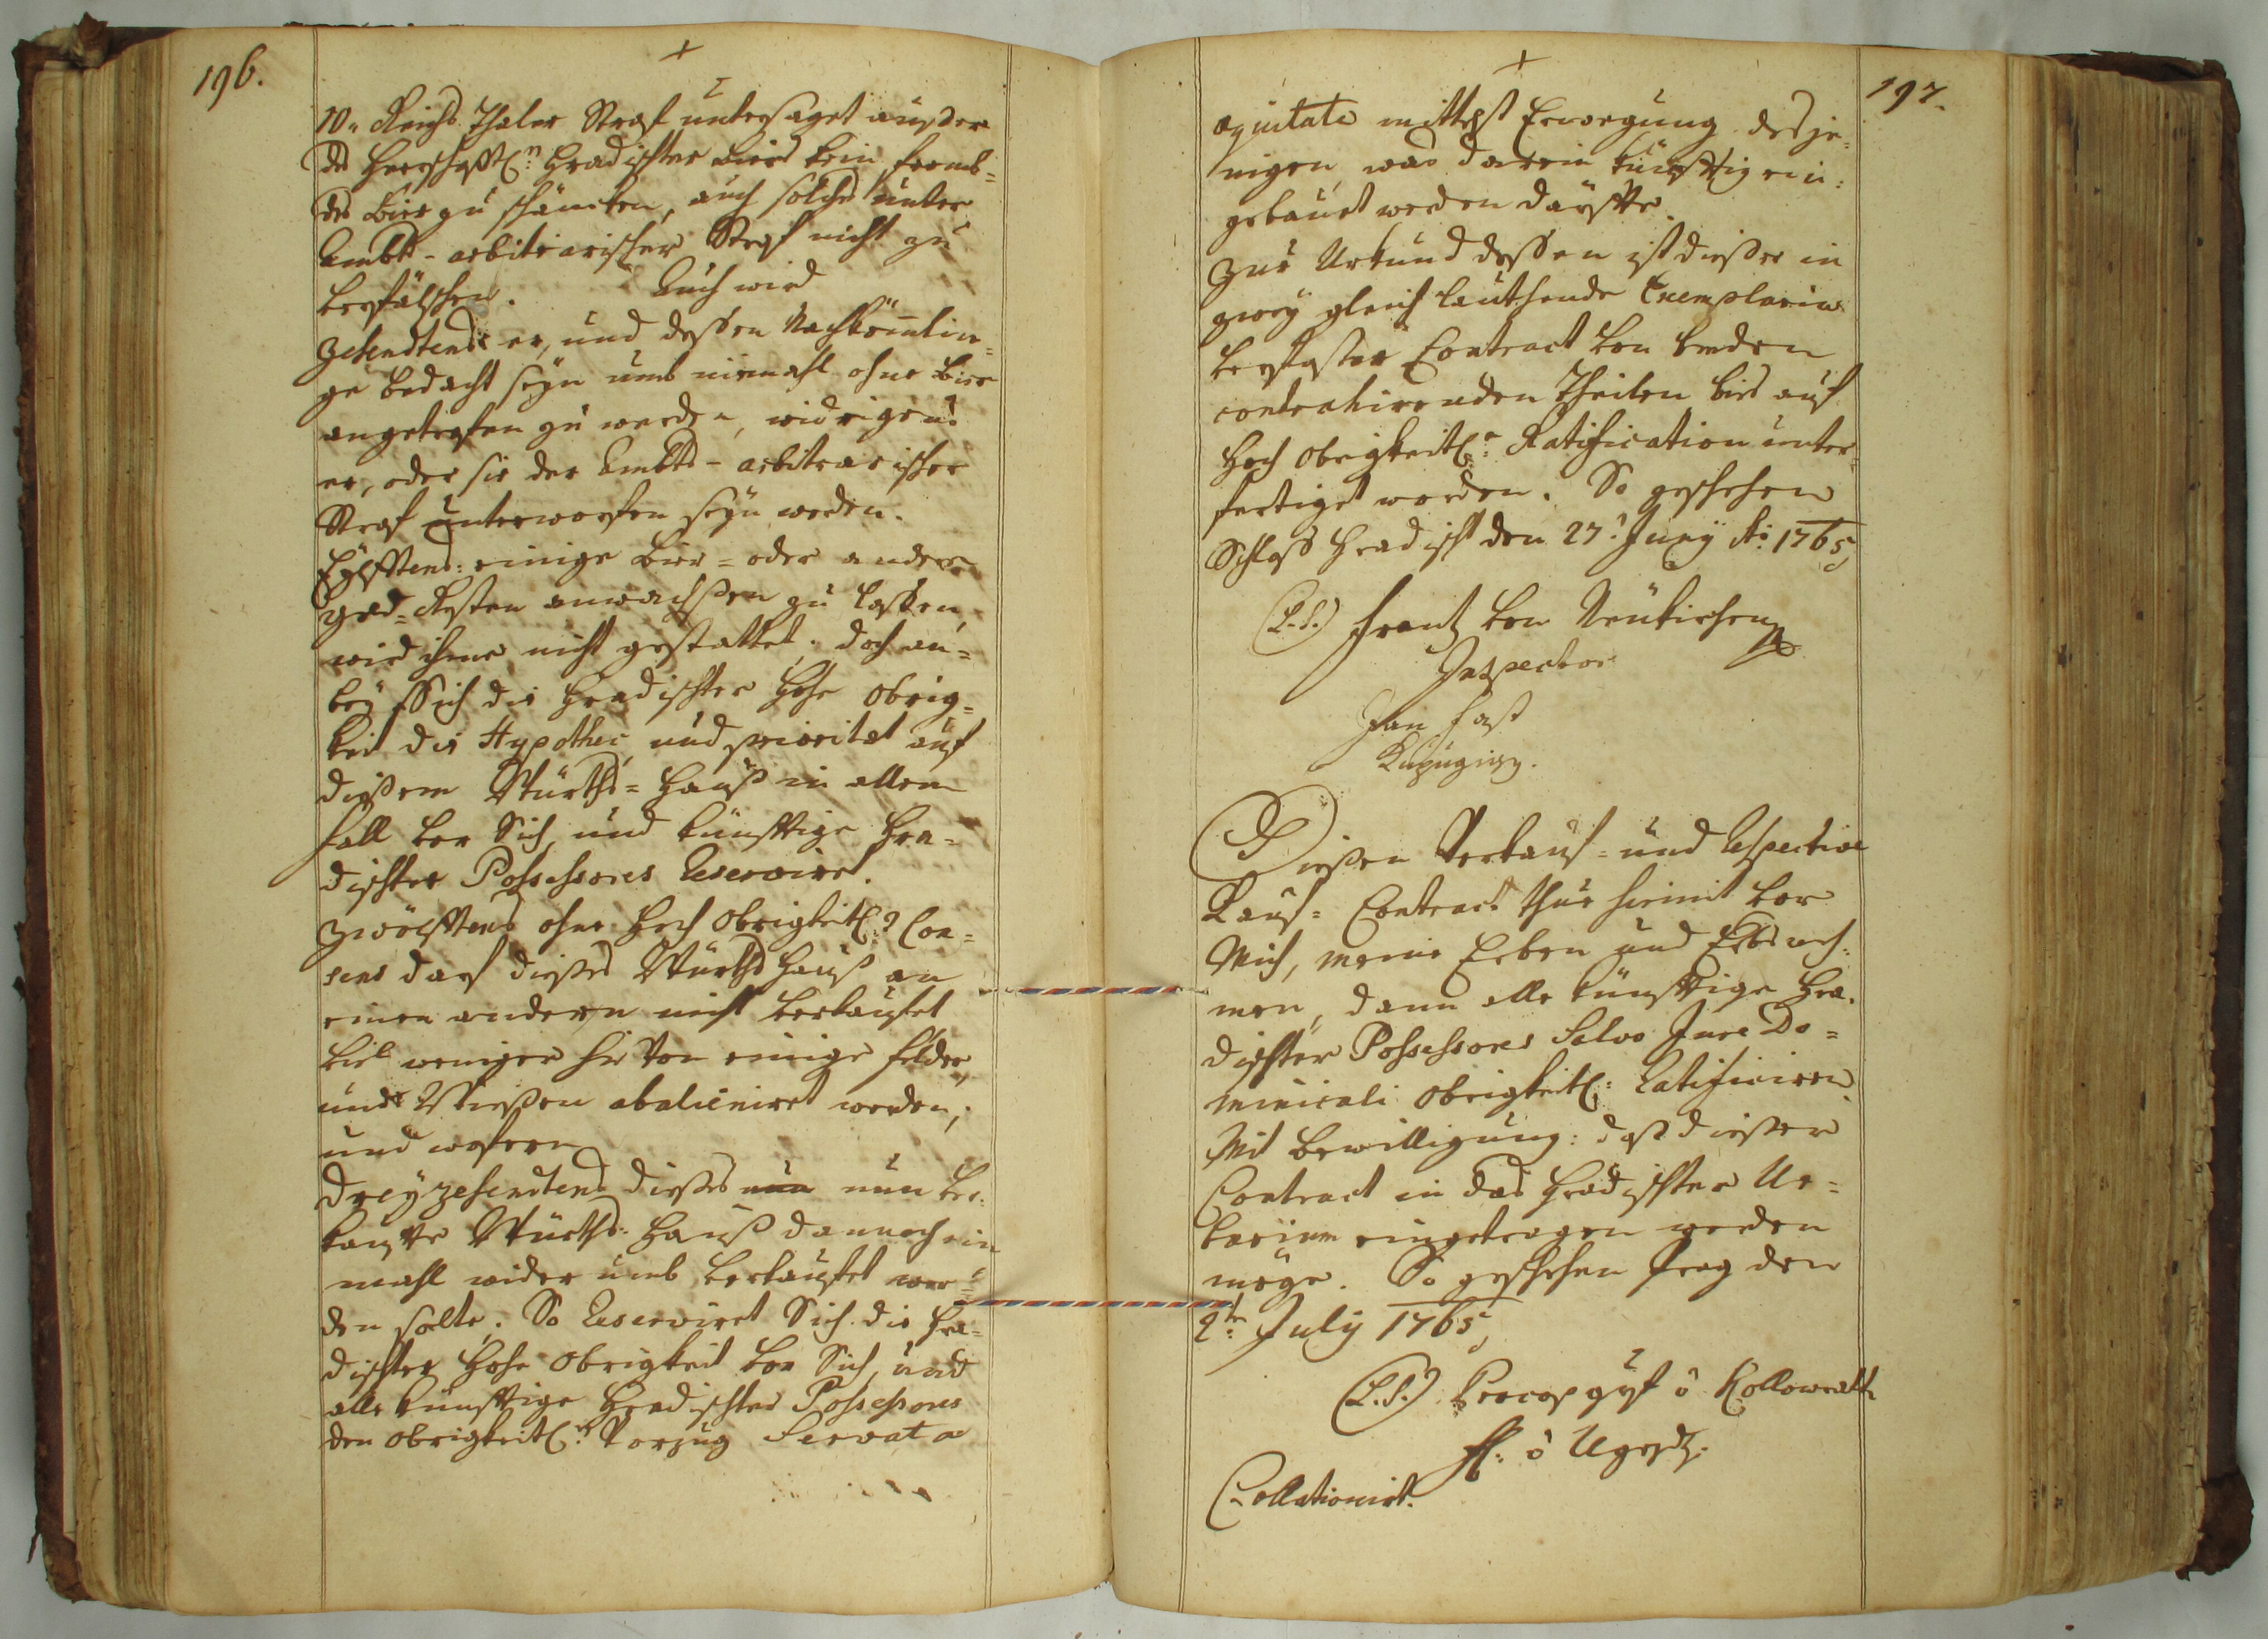 196.
10„ Reichs Thaler Straf untersaget außer
des Herrschafftl:n Hradischter Biers kein fremb=
des Bier zu schäncken, auch solches unter
Ambts-arbitrarischer Straf nicht zu
verfälschen. Auch wird
Zehendtens er, und dessen Nachkömlin=
ge bedacht seyn umb niemahl ohne Bier
angetrofen zu werden, widrigens
er, oder sie der Ambts-arbitrarischer
Straf unterworfen seyn werden.
Eylfftens: einige Bier= oder andere
Resten anwachßen zu lassen,
wird ihme nicht gestattet. doch an=
bey Sich die Hradischter Hohe Obrig=
keit die Hypothec und prioritat auf
dießem Würths=Hauß in allem
fall vor Sich, und künfftige Hra=
dischter Possessores Reserviret.
Zwölfftens ohne Hoch Obrigkeitl: Con=
sens darf dießes Würths Hauß an
einen andern nicht verkaufet
viel weniger hievon einige felder,
und Wießen abalieniret werden,
und wofern
Dreyzehendtens dießes nun ver:
kaufte Würths:Hauß dannoch ein
mahl wider umb verkaufet wer=
den solte. So Reserviret Sich die Hra=
dischter Hohe Obrigkeit vor Sich, und
alle künfftige Hradischter Possessores
den Obrigkeitl: Vorzug Servata
197.
æquitate mittelst Erwegung des je=
nigen was darein künfftig ein:
gebauet werden dürffte.
Zur Urkund dessen ist dießer in
zwey gleich lauthende Exemplarien
verfaster Contract von beeden
contrahirenden Theilen bis auf
Hoch Obrigkeitl: Ratification unter=
fertiget worden. So geschehen
Schloß Hradischt den 27: Juny Ao: 1765
(L.S.) Frantz von Neukirchen
Inspector
Jan
Dießen Verkauf= und Respective
Kauf= Contract thue hiemit vor
Mich, meine Erben und Erbsneh:
men, dann alle künfftige Hra=
dischter Possessores Salvo Jure Do=
minicali Obrigkeitl: Ratificiren
Mit Bewilligung: daß dießer
Contract in das Hradischter Ur=
barium eingetragen werden
möge. So geschehen Prag den
2ten July 1765
(L.S.) Procop graf v Kollowrath
Collationirt.